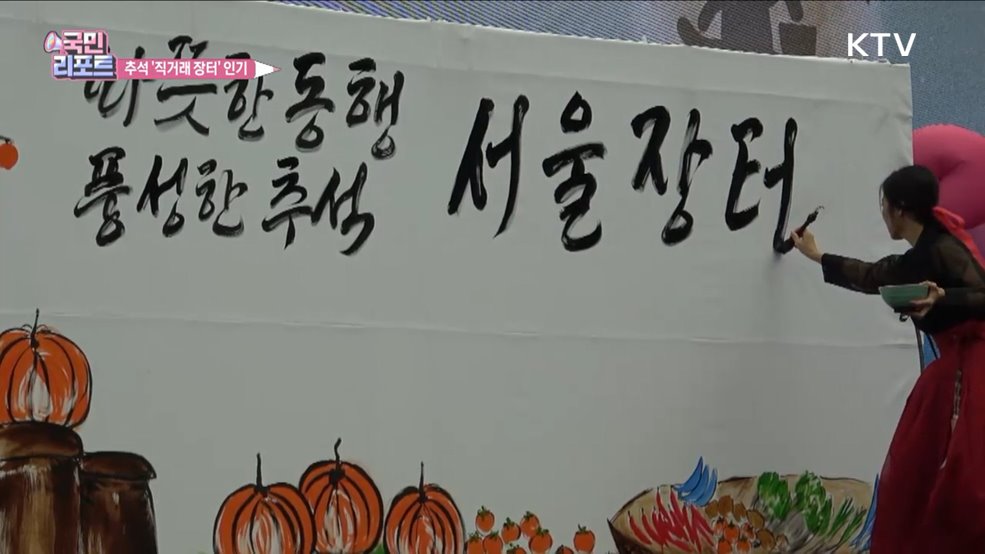 국민
리포트
추석 '직거래 장터' 인기
KTV
따뜻한 동행
풍성한 추석
서울장터